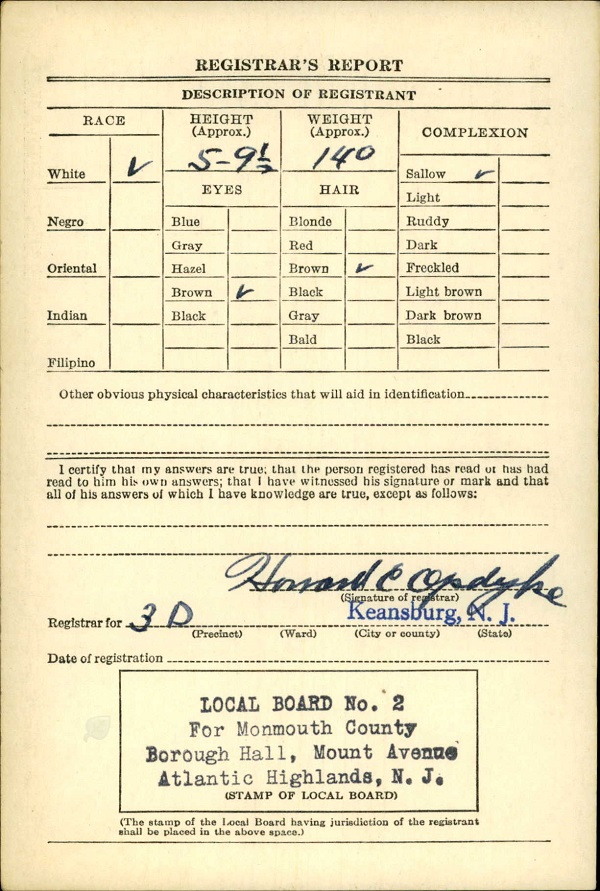 REGISTRAR'S REPORT
DESCRIPTION OF REGISTRANT
RACE
HEIGHT
(Approx.)
WEIGHT
(Approx.)
COMPLEXION
5-9½
140
White ✓
Sallow ✓
EYES
HAIR
Light
Negro
Blue
Blonde
Ruddy
Gray
Red
Dark
Oriental
Hazel
Brown ✓
Freckled
Brown ✓
Black
Light brown
Indian
Black
Gray
Dark brown
Bald
Black
Filipino
Other obvious physical characteristics that will aid in identification
I certify that my answers are true; that the person registered has read or has had
read to him his own answers; that I have witnessed his signature or mark and that
all of his answers of which I have knowledge are true, except as follows:
Howard C Opdyke
(Signature of registrar)
Registrar for 3 D Keansburg, N. J.
(Precinct) (Ward) (City or county) (State)
Date of registration
LOCAL BOARD No. 2
For Monmouth County
Borough Hall, Mount Avenue
Atlantic Highlands, N. J.
(STAMP OF LOCAL BOARD)
(The stamp of the Local Board having jurisdiction of the registrant
shall be placed in the above space.)